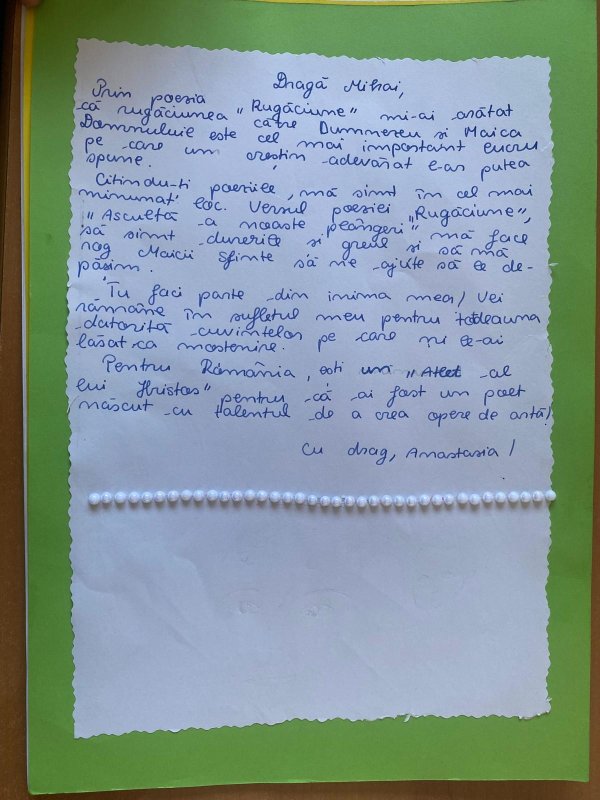 Dragă Mihai,
Prin poezia "Rugăciune" mi-ai arătat
că rugăciunea către Dumnezeu și Maica
Domnului e este cel mai important lucru
pe care un creștin adevărat l-ar putea
spune.
Citindu-ți poeziile, mă simt în cel mai
minunat loc. Versul poeziei "Rugăciune",
"Ascultă a noastre plângeri" mă face
să simt durerile și greul și să mă
rog Maicii Sfinte să ne ajute să le de-
pășim.
Tu faci parte din inima mea! Vei
rămâne în sufletul meu pentru totdeauna
datorită cuvintelor pe care ni le-ai
lăsat ca moștenire.
Pentru România, ești un "Atlet al
lui Hristos" pentru că ai fost un poet
născut cu talentul de a crea opere de artă!
Cu drag, Anastasia!